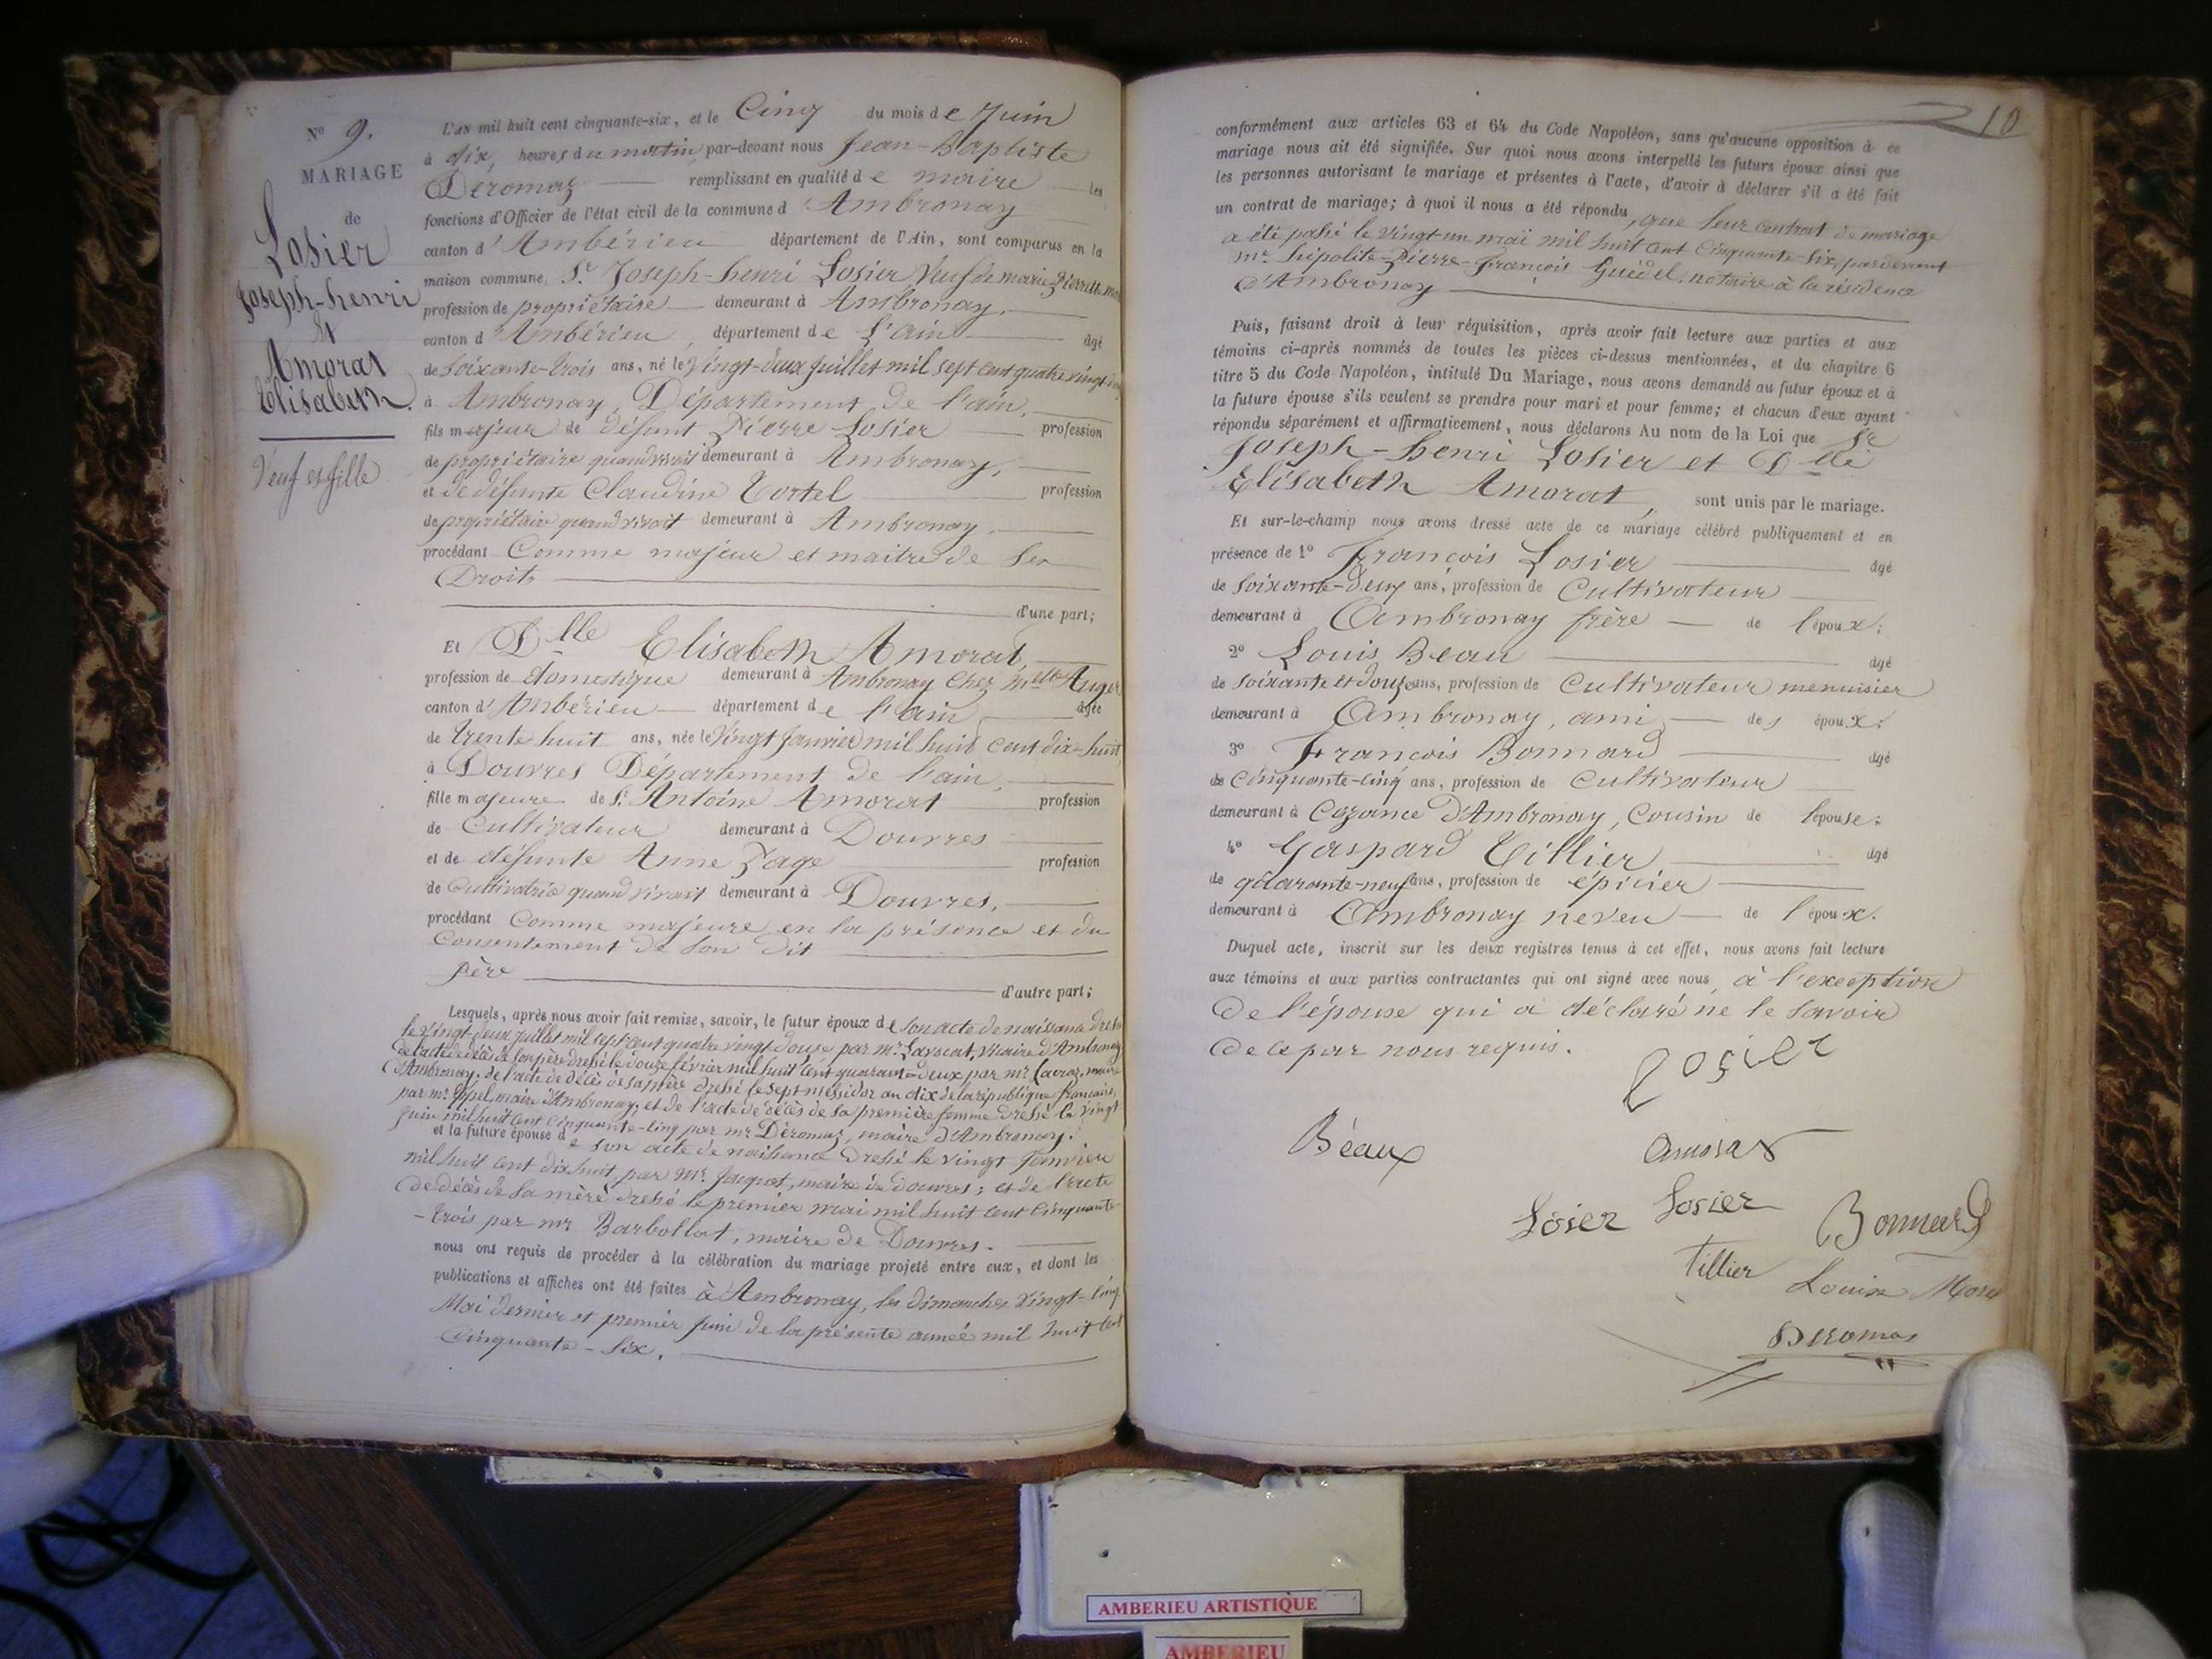 N° 9.
MARIAGE
de
Losier
Joseph-henri
et
Amorat
Elisabeth.
Veuf et fille
L'an mil huit cent cinquante-six, et le Cinq du mois de Juin
à dix heures du matin par-devant nous Jean-Baptiste
Déromaz remplissant en qualité de maire les
fonctions d'Officier de l'état civil de la commune d'Ambronay
canton d'Ambérieu département de l'Ain, sont comparus en la
maison commune, Sr Joseph-henri Losier Veuf de marie-Pierrette
profession de propriétaire demeurant à Ambronay,
canton d'Ambérieu, département de l'ain âgé
de soixante-trois ans, né le Vingt-deux juillet mil sept cent quatre vingt
à Ambronay, Département de l'ain,
fils majeur de défunt Pierre Losier profession
de propriétaire quand vivait demeurant à Ambronay,
et de défunte Claudine Tortel profession
de propriétaire quand vivait demeurant à Ambronay,
procédant Comme majeur et maitre de Ses
Droits
d'une part;
Et Dlle Elisabeth Amorat,
profession de domestique demeurant à Ambronay chez Melle Auger
canton d'Ambérieu département de l'ain, âgée
de trente huit ans, née le Vingt janvier mil huit cent dix-huit
à Douvres Département de l'ain,
fille majeure de Sr Antoine Amorat profession
de Cultivateur demeurant à Douvres
et de défunte Anne Page profession
de Cultivatrice quand vivait demeurant à Douvres,
procédant Comme majeure en la présence et du
Consentement de Son dit
père
d'autre part;
Lesquels, après nous avoir fait remise, savoir, le futur époux de Son acte de naissance dressé
le vingt-deux juillet mil sept cent quatre vingt douze par mr Lavocat, Vicaire d'Ambronay,
de l'acte de décès de son père dressé le douze février mil huit cent quarante-deux par mr Lacroz, maire
d'Ambronay, de l'acte de décès de sa mère dressé le sept messidor an dix de la république française,
par mr maire d'Ambronay, et de l'acte de décès de sa première femme dressé le vingt
juin mil huit cent cinquante-cinq par mr Déromaz, maire d'Ambronay.
et la future épouse de son acte de naissance dressé le vingt Janvier
mil huit cent dix huit, par Mr Jacquet, maire de douvres; et de l'acte
de décès de sa mère dressé le premier mai mil huit cent cinquante
-trois par mr Barbollat, maire de Douvres.
nous ont requis de procéder à la célébration du mariage projeté entre eux, et dont les
publications et affiches ont été faites à Ambronay, les dimanches Vingt-cinq
Mai dernier et premier juin de la présente année mil huit cent
Cinquante-six.
10
conformément aux articles 63 et 64 du Code Napoléon, sans qu'aucune opposition à ce
mariage nous ait été signifiée. Sur quoi nous avons interpellé les futurs époux ainsi que
les personnes autorisant le mariage et présentes à l'acte, d'avoir à déclarer s'il a été fait
un contrat de mariage; à quoi il nous a été répondu, que leur contrat de mariage
a été passé le Vingt un mai mil huit cent cinquante-six, pardevant
mr hipolite-Pierre-françois Guédel, notaire à la résidence
d'Ambronay
Puis, faisant droit à leur réquisition, après avoir fait lecture aux parties et aux
témoins ci-après nommés de toutes les pièces ci-dessus mentionnées, et du chapitre 6
titre 5 du Code Napoléon, intitulé Du Mariage, nous avons demandé au futur époux et à
la future épouse s'ils veulent se prendre pour mari et pour femme; et chacun d'eux ayant
répondu séparément et affirmativement, nous déclarons Au nom de la Loi que Sr
Joseph-henri Losier et Dlle
Elisabeth Amorat, sont unis par le mariage.
Et sur-le-champ nous avons dressé acte de ce mariage célébré publiquement et en
présence de 1° François Losier âgé
de soixante-deux ans, profession de Cultivateur
demeurant à Ambronay frère de l'époux;
2° Louis Beau âgé
de soixante et douze ans, profession de Cultivateur menuisier
demeurant à Ambronay, ami des époux;
3° François Bonnard âgé
de cinquante-cinq ans, profession de Cultivateur
demeurant à Cozance d'Ambronay, Cousin de l'épouse;
4° Gaspard Tillier âgé
de quarante-neuf ans, profession de épicier
demeurant à Ambronay neveu de l'époux.
Duquel acte, inscrit sur les deux registres tenus à cet effet, nous avons fait lecture
aux témoins et aux parties contractantes qui ont signé avec nous, à l'exception
de l'épouse qui a déclaré ne le Savoir
de ce par nous requis.
Losier
Béaux
amorat
Losier Losier
Bonnard
Tillier
Louise
Déromas
AMBERIEU ARTISTIQUE
AMBERIEU